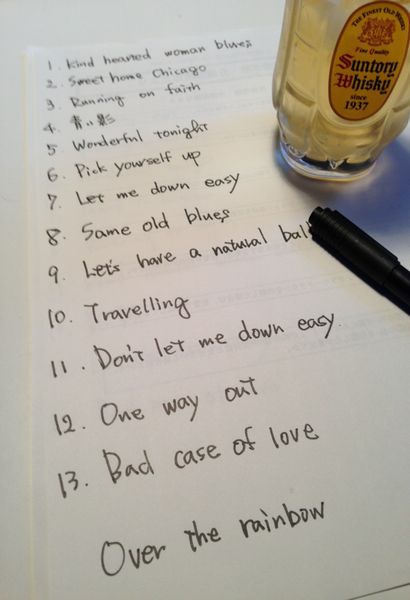 1. Kind hearted woman blues
2. Sweet home Chicago
3. Running on faith
4. 青い影
5 Wonderful tonight
6. Pick yourself up
7. Let me down easy
8. Same old blues
9. Let's have a natural ball
10. Travelling
11. Don't let me down easy.
12. One way out
13. Bad case of love
Over the rainbow
THE FINEST OLD WHISKY
Fine Quality
Suntory
Whisky
since
1937